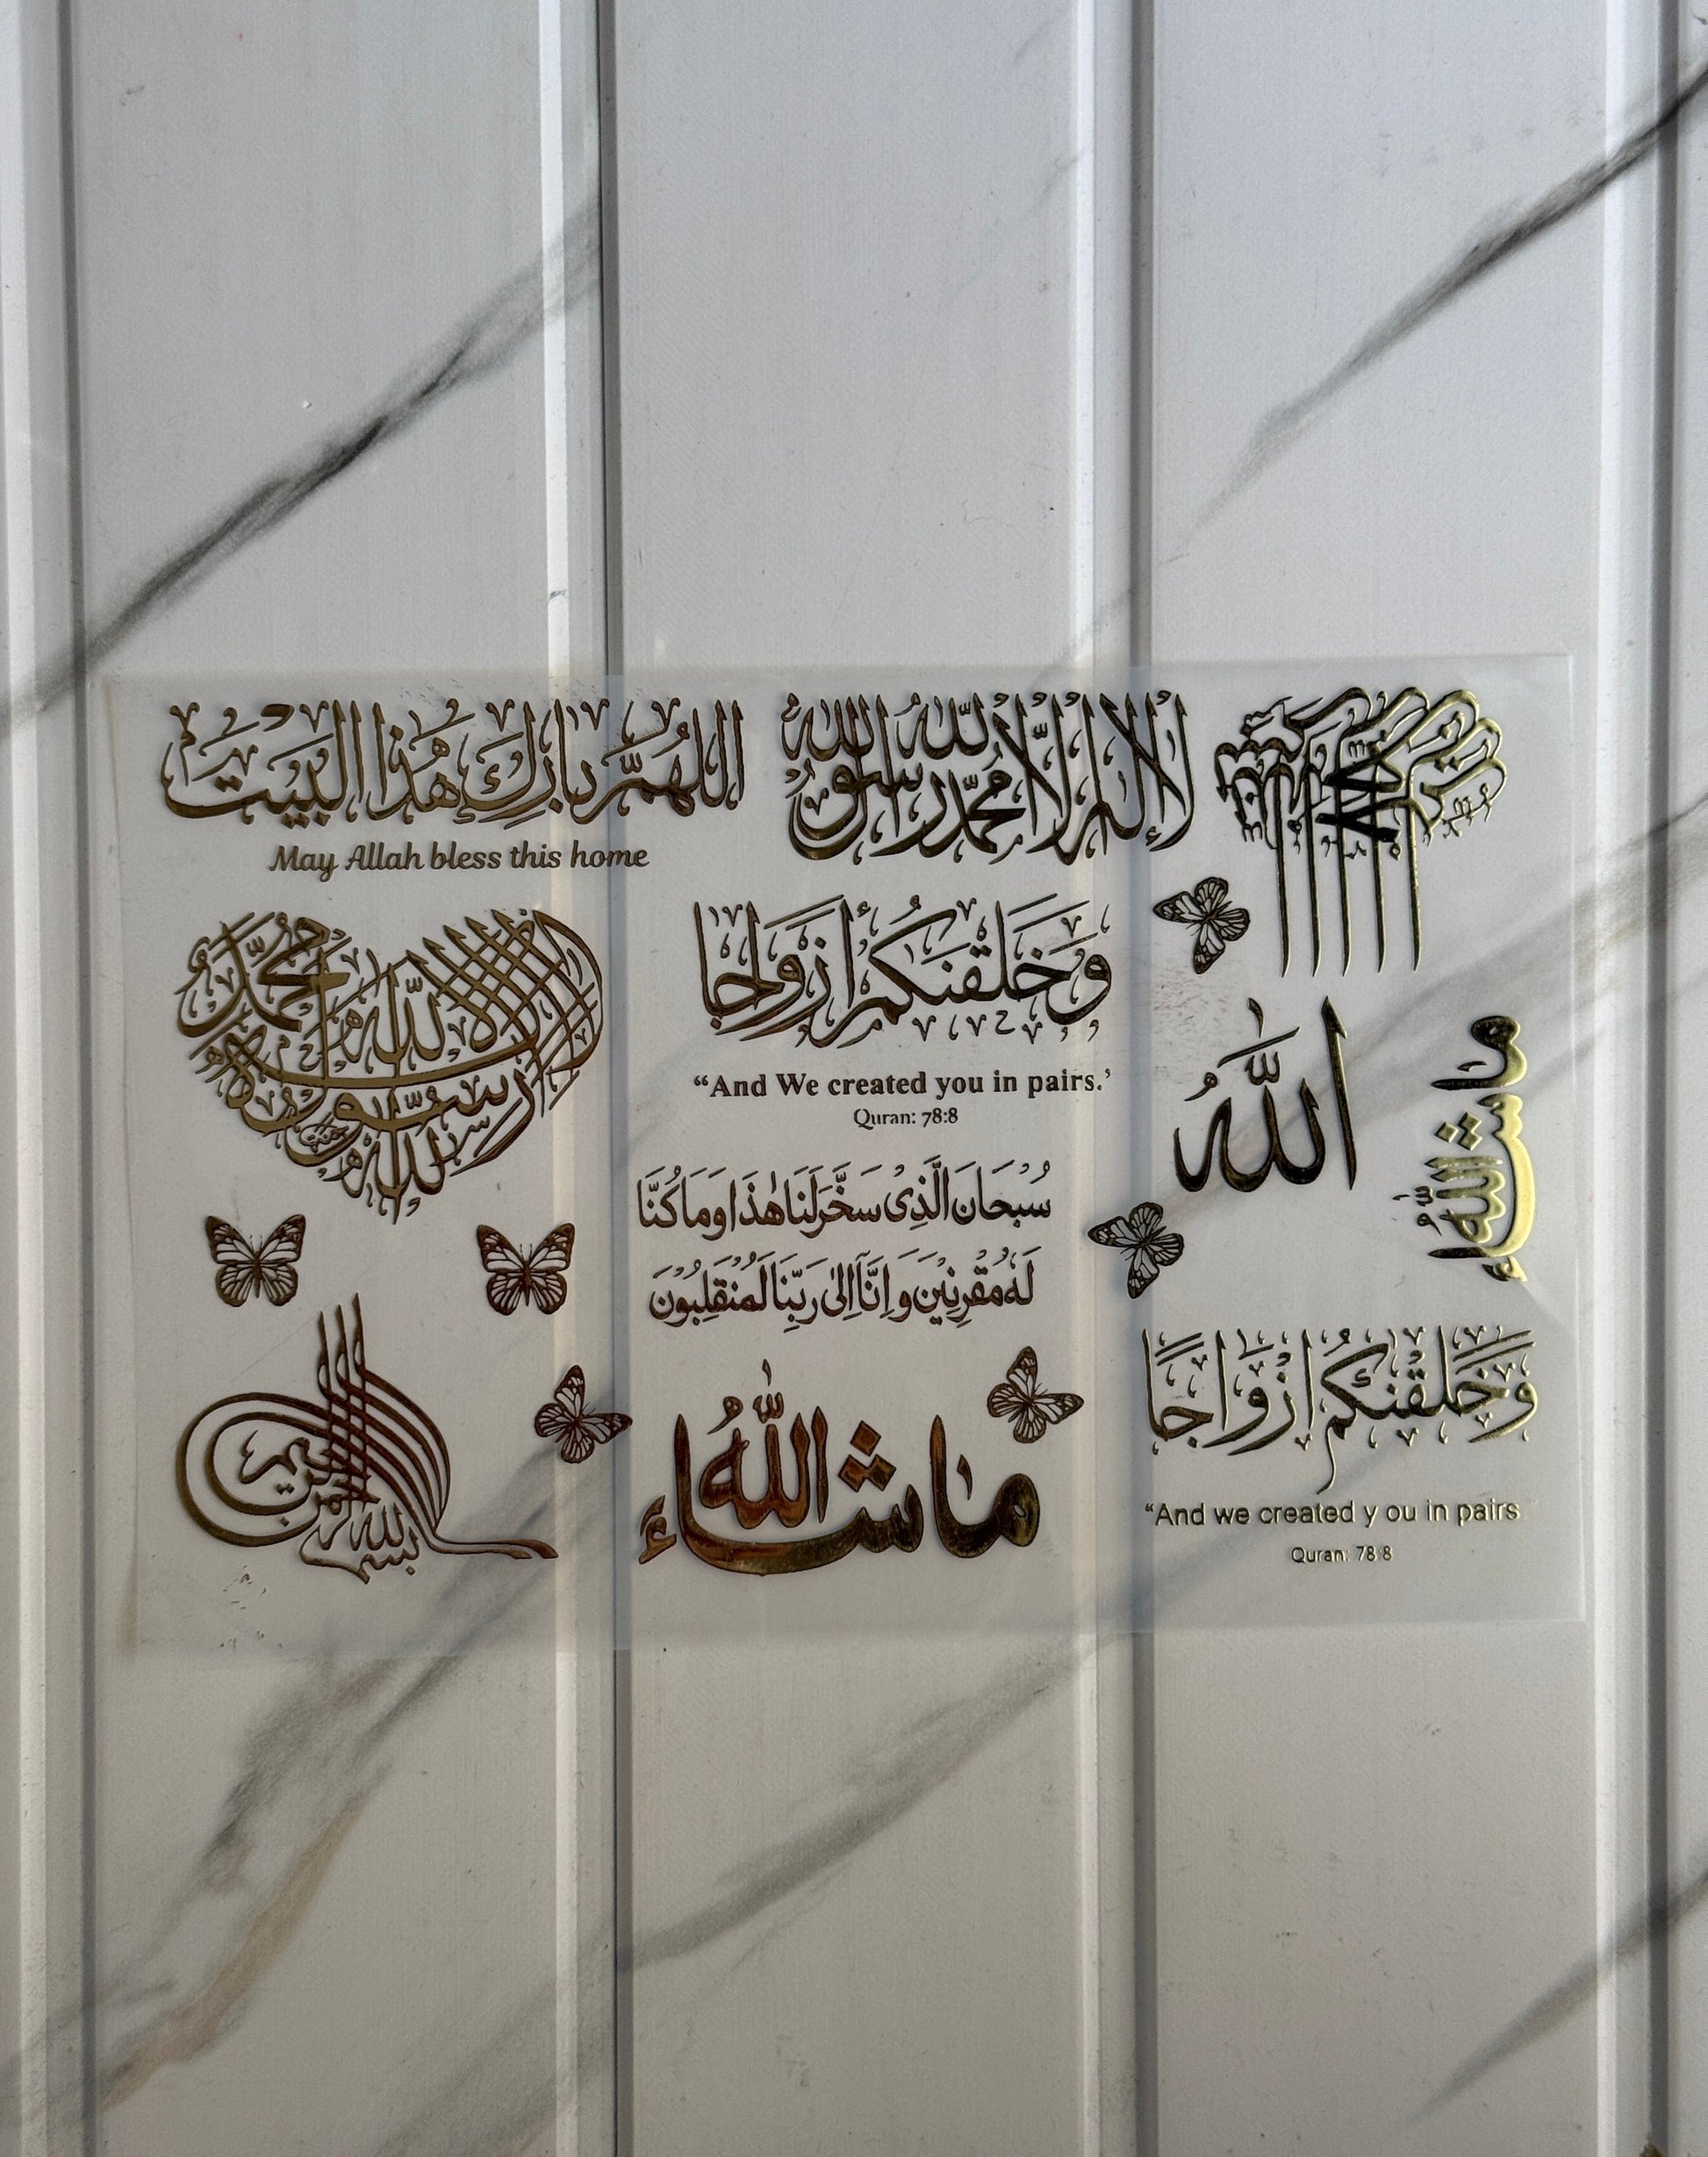 اللهم بارك هذا البيت
May Allah bless this home
لا إله إلا الله محمد رسول الله
لا إله إلا الله محمد رسول الله
وَخَلَقْنَكُمْ أَزْوَاجًا
“And We created you in pairs.’
Quran: 78:8
الله
ما شاء الله
سُبْحَانَ الَّذِىْ سَخَّرَ لَنَا هٰذَا وَمَا كُنَّا
لَهٗ مُقْرِنِيْنَ وَاِنَّآ اِلٰى رَبِّنَا لَمُنْقَلِبُوْنَ
بسم الله الرحمن الرحيم
ما شاء الله
وَخَلَقْنَكُمْ أَزْوَاجًا
“And we created y ou in pairs
Quran: 78:8